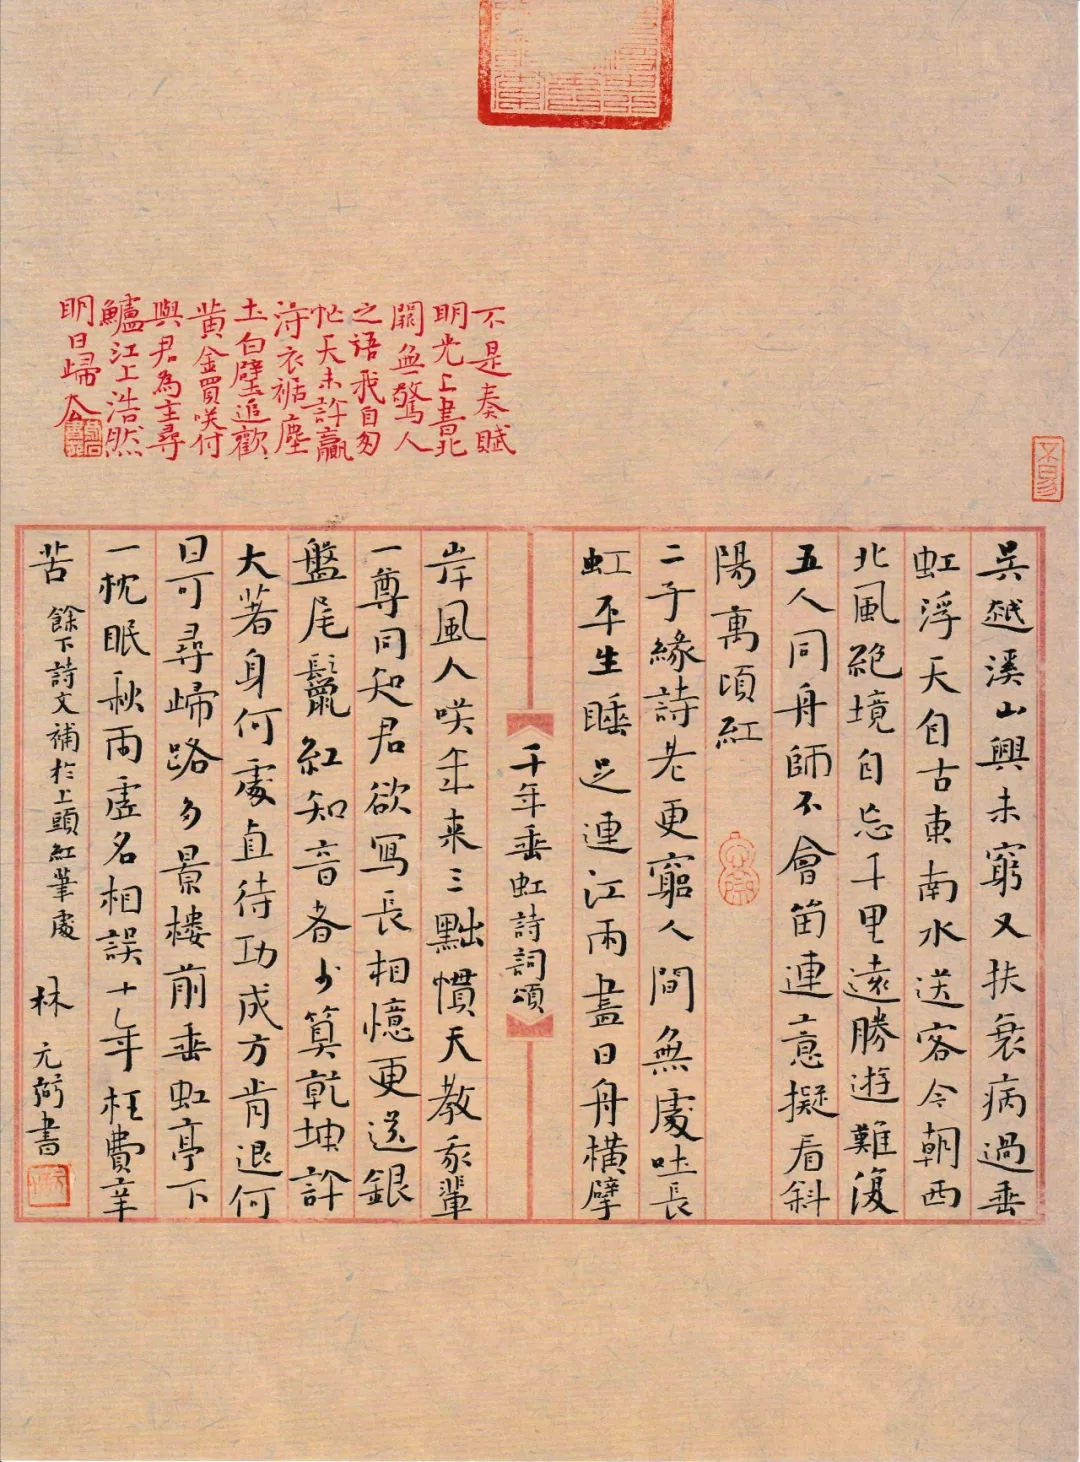 吳越溪山興未窮又扶衰病過垂
虹浮天自古東南水送客今朝西
北風絕境自忘千里遠勝遊難復
五人同舟師不會笛連意擬看斜
陽萬頃紅
二子緣詩老更窮人間無處吐長
虹平生睡足連江雨盡日舟橫擘
千年垂虹詩詞頌
岸風人咲年来三黜慣天教我輩
一尊同知君欲寫長相憶更送銀
盤尾鬣紅知音者少算乾坤許
大著身何處直待功成方肯退何
日可尋歸路多景樓前垂虹亭下
一枕眠秋雨虛名相誤十年枉費辛
苦
餘下詩文補於上頭紅筆處
林
元弼書
不是奏賦
明光上書北
闕無驚人
之語我自匆
忙天未許贏
得衣裾塵
土白璧追歡
黃金買咲付
與君為主尋
鱸江上浩然
明日歸去